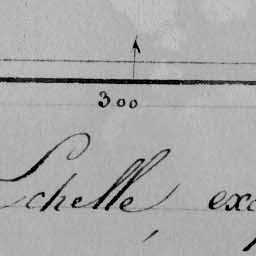 300
Echelle exa